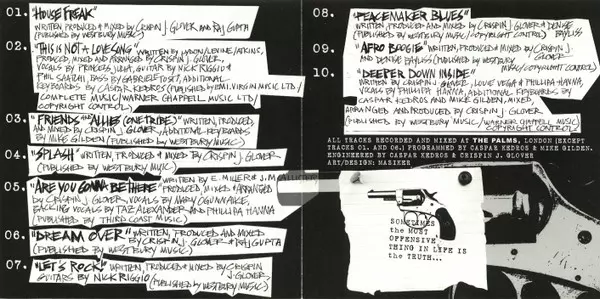 01. "HOUSE FREAK"
WRITTEN, PRODUCED + MIXED BY CRISPIN J. GLOVER AND RAJ GUPTA
(PUBLISHED BY WESTBURY MUSIC)
02. "THIS IS NOT A LOVE SONG" WRITTEN BY LYDON/LEVENE/ATKINS,
PRODUCED, MIXED AND ARRANGED BY CRISPIN J. GLOVER,
VOCALS BY PRINCESS JULIA, GUITAR BY NICK RIGGIO &
PHIL BAARDA, BASS BY GABRIELE TOSET, ADDITIONAL
KEYBOARDS BY CASPAR KEDROS (PUBLISHED BY EMI VIRGIN MUSIC LTD/
COMPLETE MUSIC/WARNER CHAPPELL MUSIC LTD/
COPYRIGHT CONTROL)
03. "FRIENDS" "ALLIES (ONE TRIBE)" WRITTEN, PRODUCED
AND MIXED BY CRISPIN J. GLOVER, ADDITIONAL KEYBOARDS
BY MIKE GILDEN (PUBLISHED BY WESTBURY MUSIC)
04. "SPLASH" WRITTEN, PRODUCED + MIXED BY CRISPIN J. GLOVER
(PUBLISHED BY WESTBURY MUSIC)
05. "ARE YOU GONNA BE THERE" WRITTEN BY E. MILLER & J.
PRODUCED, MIXED + ARRANGED
BY CRISPIN J. GLOVER, VOCALS BY MARY OGUNNAIKE,
BACKING VOCALS BY TAZ ALEXANDER AND PHILLIPA HANNA
(PUBLISHED BY THIRD COAST MUSIC)
06. "DREAM OVER" WRITTEN, PRODUCED AND MIXED
BY CRISPIN J. GLOVER + RAJ GUPTA
(PUBLISHED BY WESTBURY MUSIC)
07. "LET'S ROCK!" WRITTEN, PRODUCED + MIXED BY CRISPIN J. GLOVER
GUITARS BY NICK RIGGIO (PUBLISHED BY WESTBURY MUSIC)
08. "PEACEMAKER BLUES"
WRITTEN, PRODUCED + MIXED BY CRISPIN J. GLOVER + DENSE BAYLISS
(PUBLISHED BY WESTBURY MUSIC/COPYRIGHT CONTROL)
09. "AFRO BOOGIE" WRITTEN, PRODUCED AND MIXED BY CRISPIN J.
AND DENSE BAYLISS (PUBLISHED BY WESTBURY
MUSIC/COPYRIGHT CONTROL)
10. "DEEPER DOWN INSIDE"
WRITTEN BY CRISPIN J. GLOVER, LOUIE VEGA & PHILLIPA HANNA,
VOCALS BY PHILLIPA HANNA, ADDITIONAL KEYBOARDS BY
CASPAR KEDROS AND MIKE GILDEN, MIXED,
ARRANGED AND PRODUCED BY CRISPIN J. GLOVER.
(PUBLISHED BY WESTBURY MUSIC/WARNER CHAPPELL MUSIC/
COPYRIGHT CONTROL
ALL TRACKS RECORDED AND MIXED AT THE PALMS, LONDON (EXCEPT
TRACKS 01. AND 06.) PROGRAMMED BY CASPAR KEDROS & MIKE GILDEN.
ENGINEERED BY CASPAR KEDROS & CRISPIN J. GLOVER
ART/DESIGN: MASIKEH
SOMETIMES
the MOST
OFFENSIVE
THING IN LIFE IS
the TRUTH...